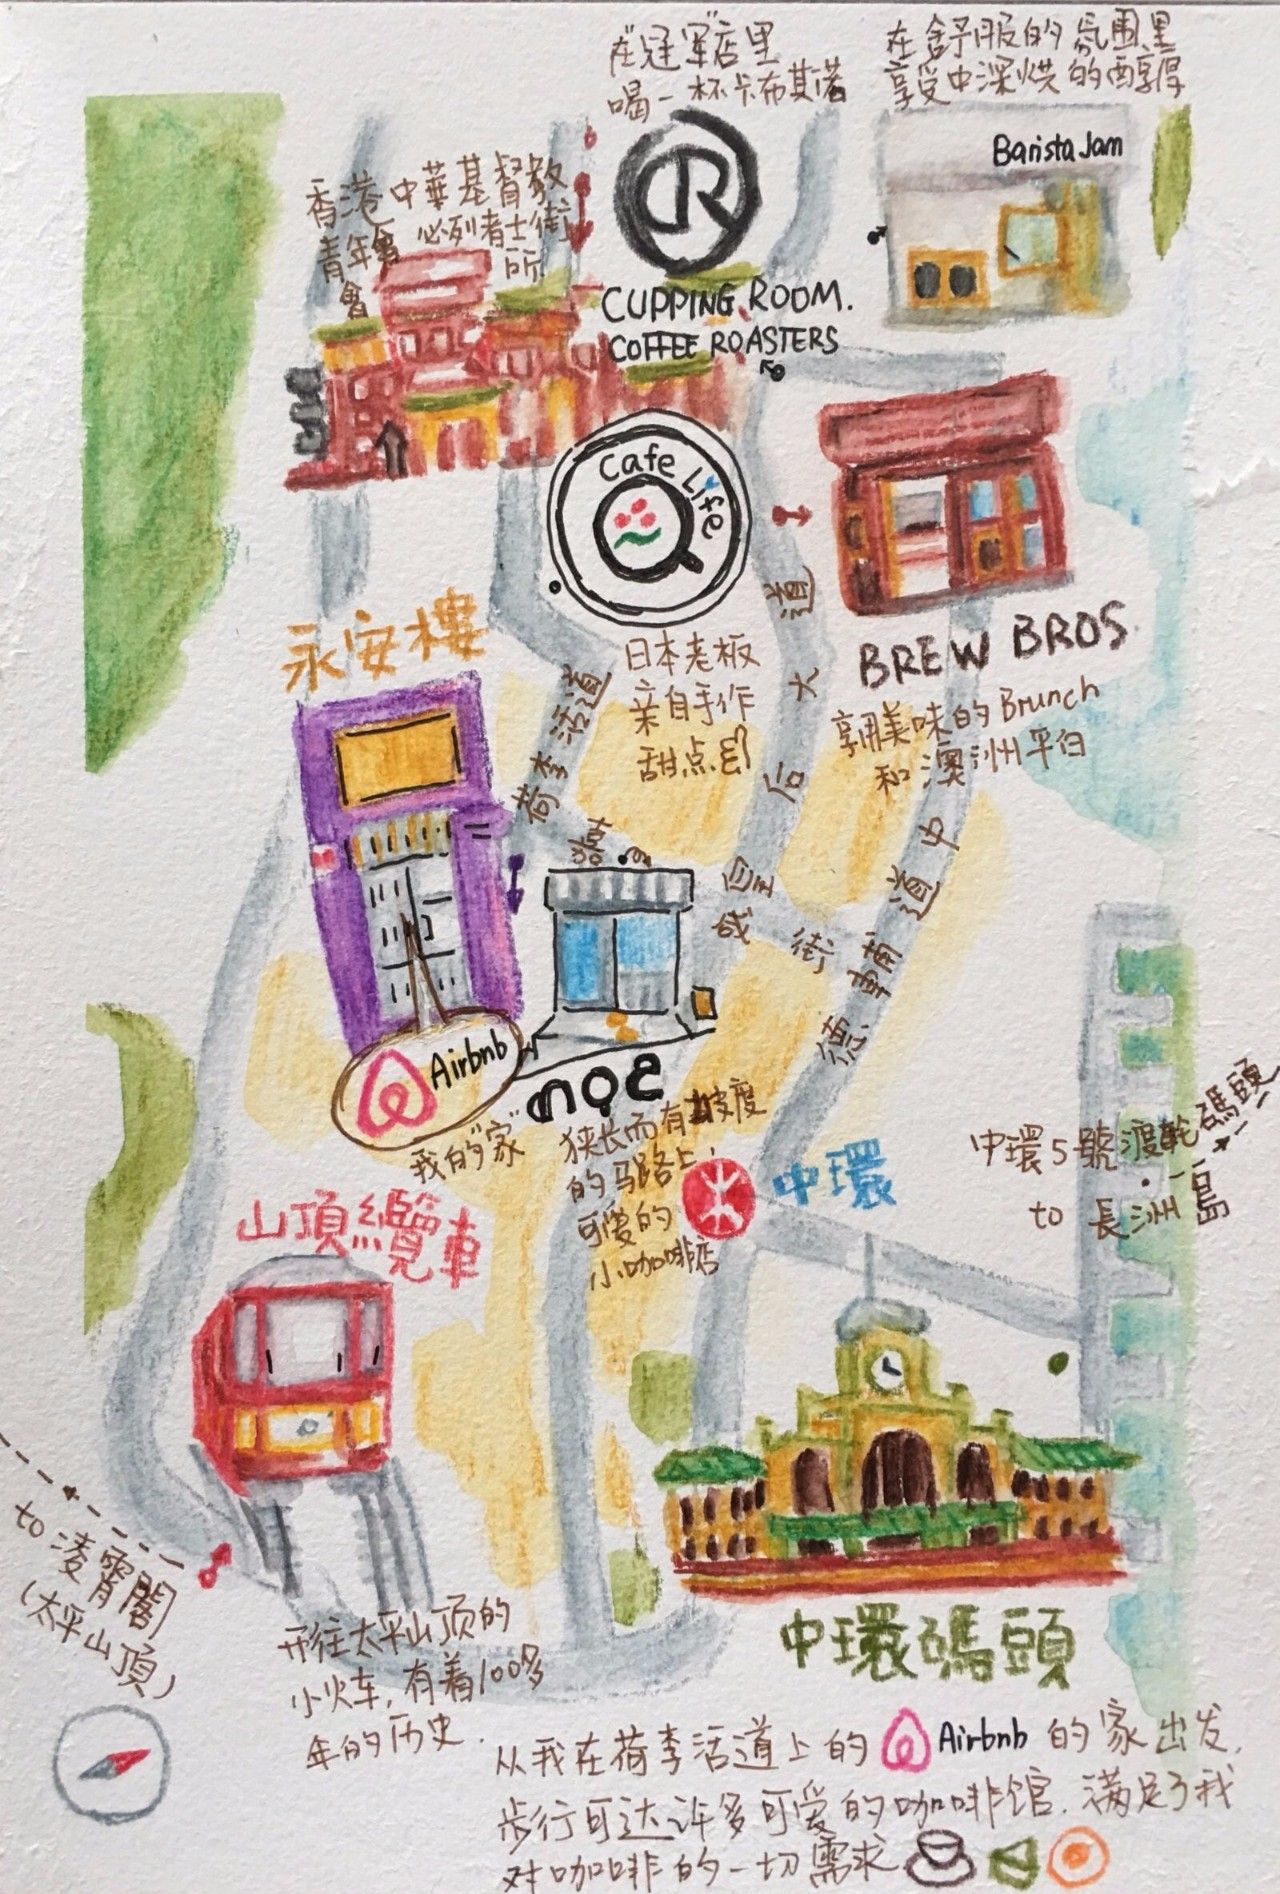 在冠军店里
喝一杯卡布其诺
在舒服的氛围里
享受中深烘的醇厚
Barista Jam
香港中華基督教
青年會必列者士街
會所
CUPPING ROOM.
COFFEE ROASTERS
Cafe Life
日本老板
亲自手作
甜点
BREW BROS.
享用美味的Brunch
和澳洲平白
永安樓
荷李活道
皇后大道
德輔道中
咸街
Airbnb
我的"家"
noc
狭长而有坡度
的马路上,
可爱的
小咖啡店
中環
中環5號渡輪碼頭
to 長洲島
山頂纜車
to 凌霄閣
(太平山頂)
开往太平山顶的
小火车,有着100多
年的历史.
中環碼頭
从我在荷李活道上的 Airbnb 的家出发,
步行可达许多可爱的咖啡馆.满足了我
对咖啡的一切需求